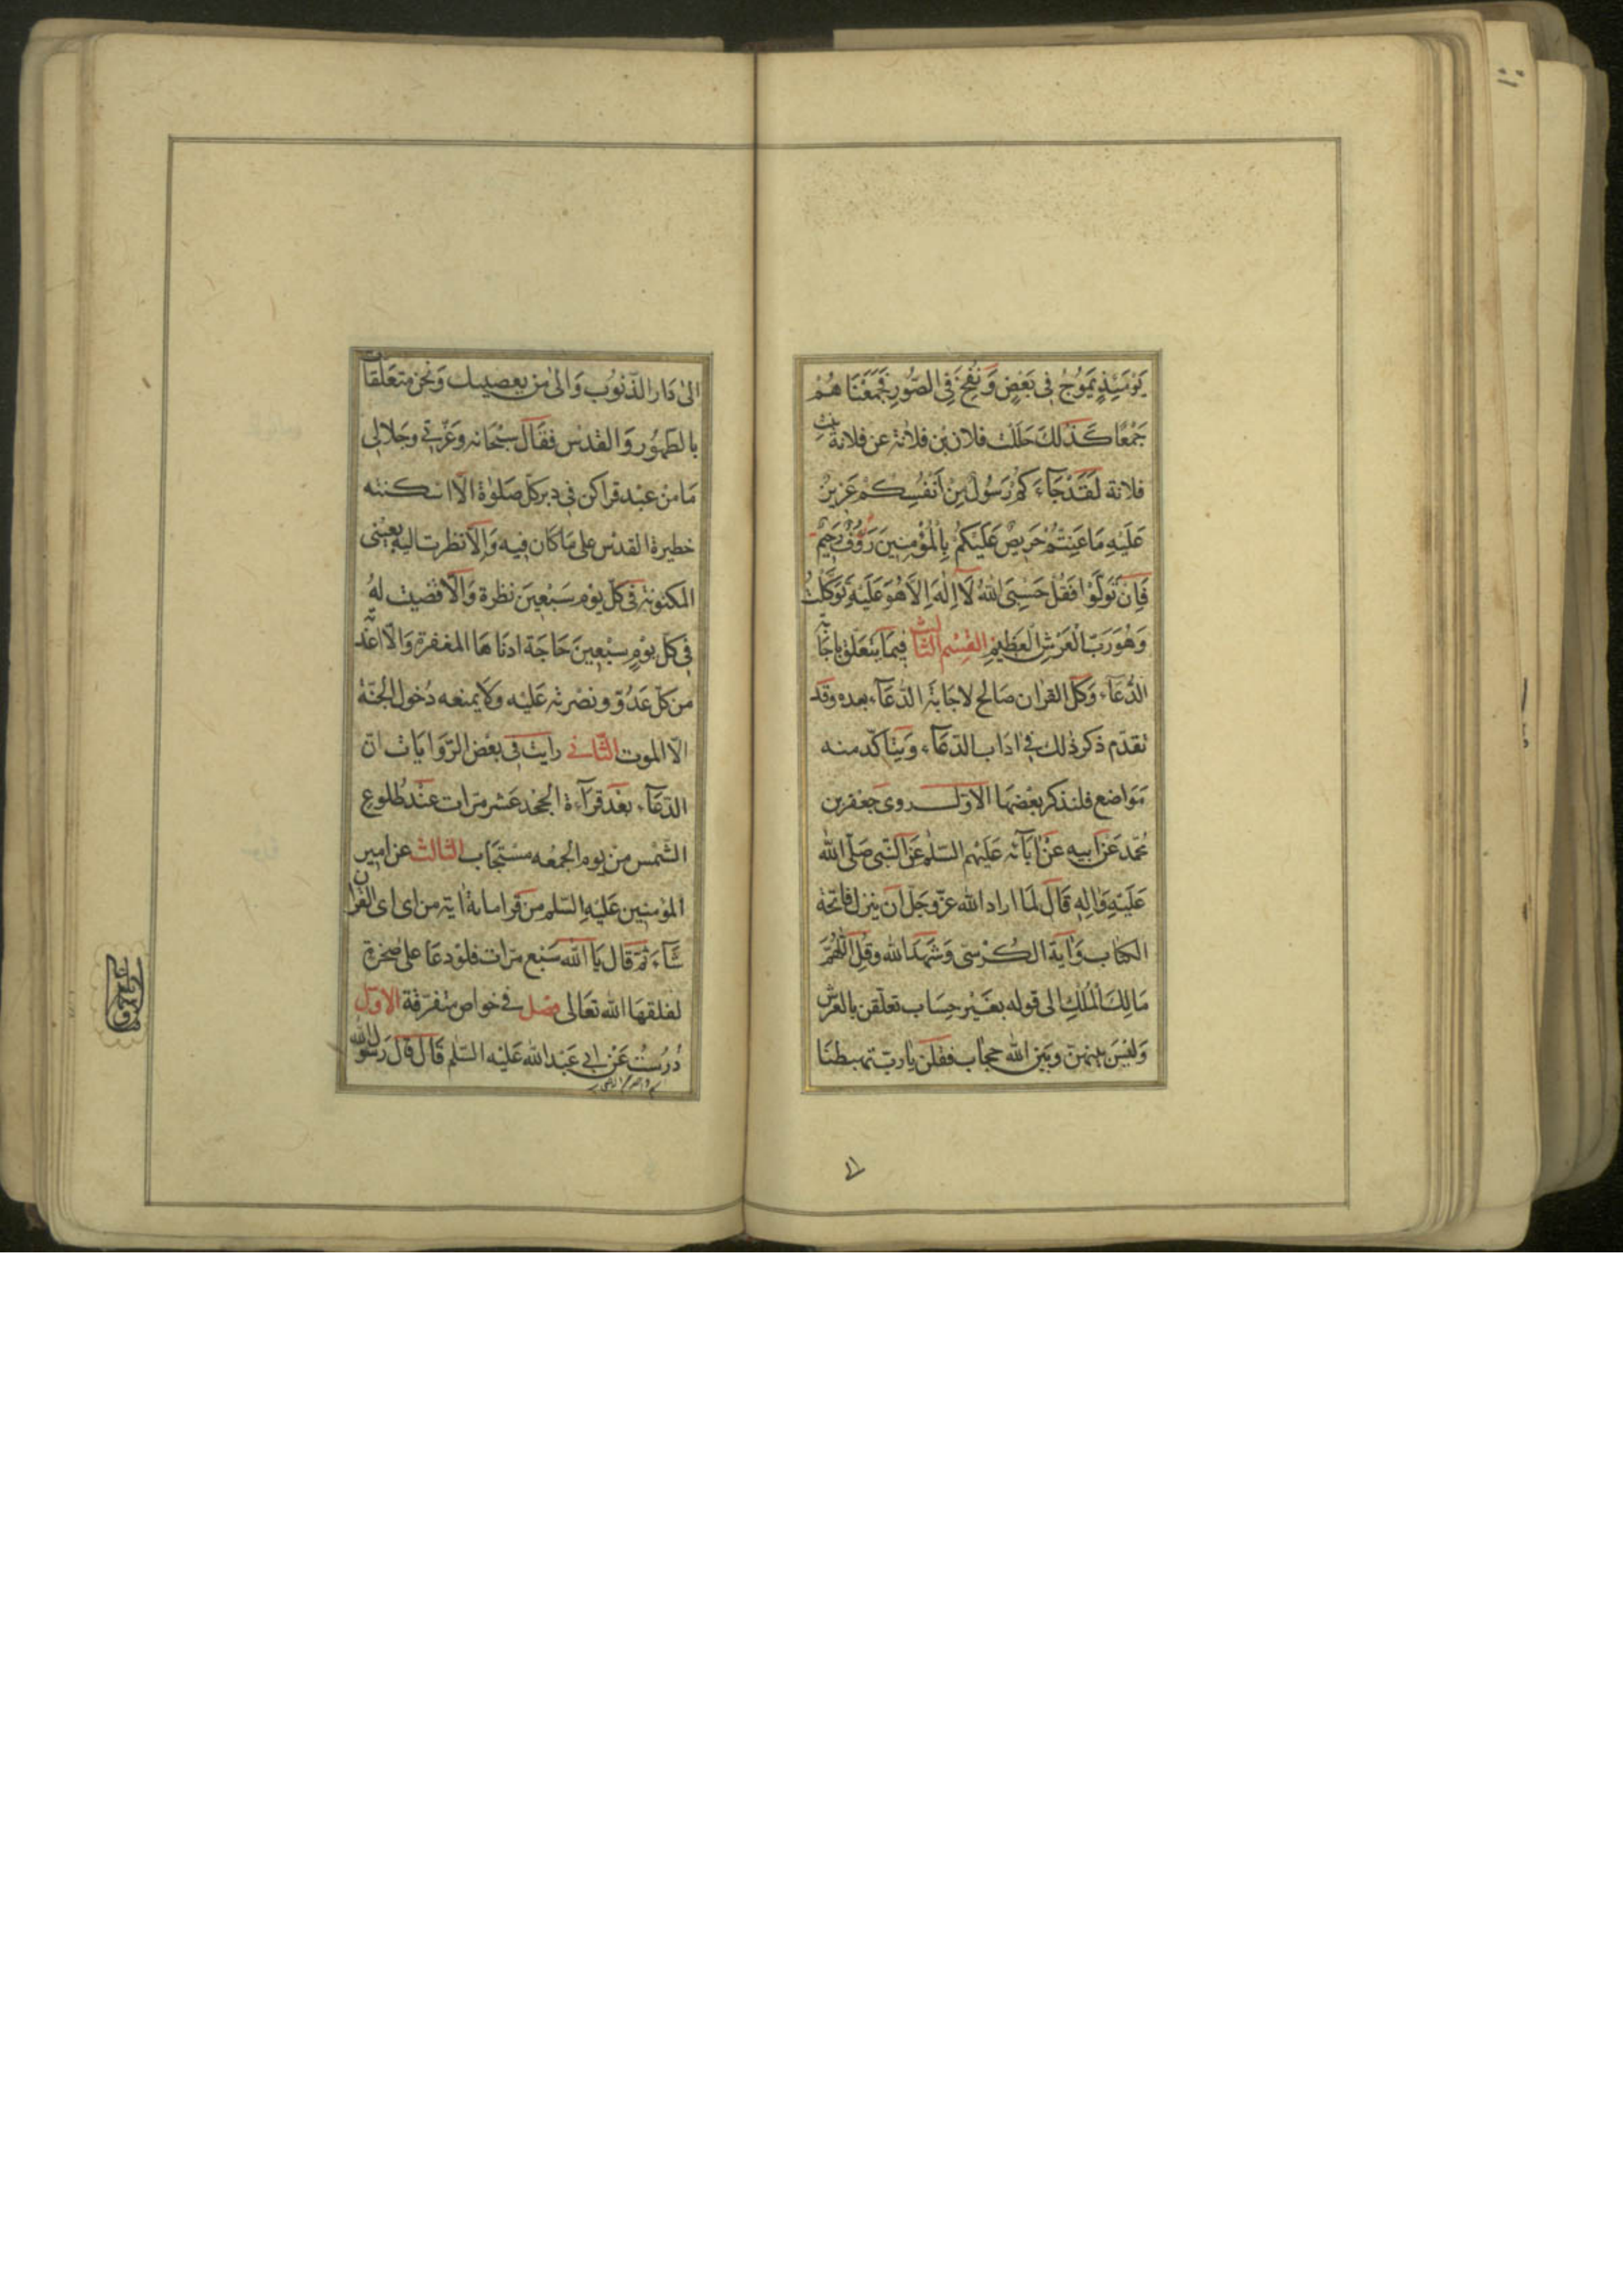 يَوْمَئِذٍ يَمُوجُ فِي بَعْضٍ وَنُفِخَ فِي الصُّورِ فَجَمَعْنَاهُمْ
جَمْعًا كَذٰلِكَ حَلَلْتُ فلان بن فلانة عن فلانة بنت
فلانة لَقَدْ جَاءَكُمْ رَسُولٌ مِنْ أَنْفُسِكُمْ عَزِيزٌ
عَلَيْهِ مَا عَنِتُّمْ حَرِيصٌ عَلَيْكُمْ بِالْمُؤْمِنِينَ رَؤُفٌ رَحِيمٌ
فَإِنْ تَوَلَّوْا فَقُلْ حَسْبِيَ اللهُ لَا إِلٰهَ إِلَّا هُوَ عَلَيْهِ تَوَكَّلْتُ
وَهُوَ رَبُّ الْعَرْشِ الْعَظِيمِ القِسْم الثالث فيما يتعلق باجابة
الدُّعَاء وَكلّ القران صالح لاجابة الدّعَآء بعده وقد
تقدّم ذكر ذلك في اداب الدّعَآء ويتاكّد منه
مَوَاضع فلنذكر بعْضهَا الاوّل روى جعفر بن
محمّد عَنْ ابيه عَنْ اٰبَآئه عَلَيْهم السّلم عَن النّبى صَلّى الله
عَلَيْهِ وَالِه قَالَ لمّا اراد الله عزّ وجَلّ ان ينزل فاتحة
الكتاب وَاٰية الكُرْسىّ وَشهدَ الله وقُلِ اللّٰهُمَّ
مَالِكَ الْمُلْكِ الى قوله بغَيْر حِسَاب تعلّقن بالعرش
وَليْسَ بينهنّ وبَيْن الله حجاب فقلن يا ربّ تهبطنا
الىٰ دَار الذّنوُب وَالىٰ من يعصيك وَنحْن متعَلّقات
بالطّهُور وَالقدْس فقَال سبْحَانه وَعزّتى وجَلالى
مَا منْ عبْد قراكن فى دبر كلّ صَلوٰة الّا اسكنته
خطيرة القدْس على مَا كَان فيه وَالّا نظرت اليه بعينى
المكنونة فى كلّ يوْم سَبْعينَ نظرة وَالّا قضيت لهُ
فى كلّ يوْمٍ سبْعينَ حَاجَة ادنَاهَا المغفرة وَالّا اعَذْته
من كلّ عَدُوّ ونصْرته عَليْه وَلَا يمنعه دُخول الجنّة
الّا الموت الثّانى رايت فى بعْض الرّوَايَات انّ
الدّعَآء بعْدَ قرآءة الجحْد عَشر مرّات عنْد طُلوع
الشّمْس منْ يوم الجمعْه مسْتجَاب الثالث عن امير
المؤمنين عَليْهِ السّلم من قرا مائة اٰية من اى اى القران
شَآءَ ثمّ قَال يَا الله سَبْع مرّات فلوْ دعَا على صخرة
لفلقهَا الله تعَالى فصْل فى خواص متفرّقة الاوّل
دُرُسْتُ عَنْ ابى عَبْد الله عَليْه السّلم قَالَ قَالَ رَسُول الله